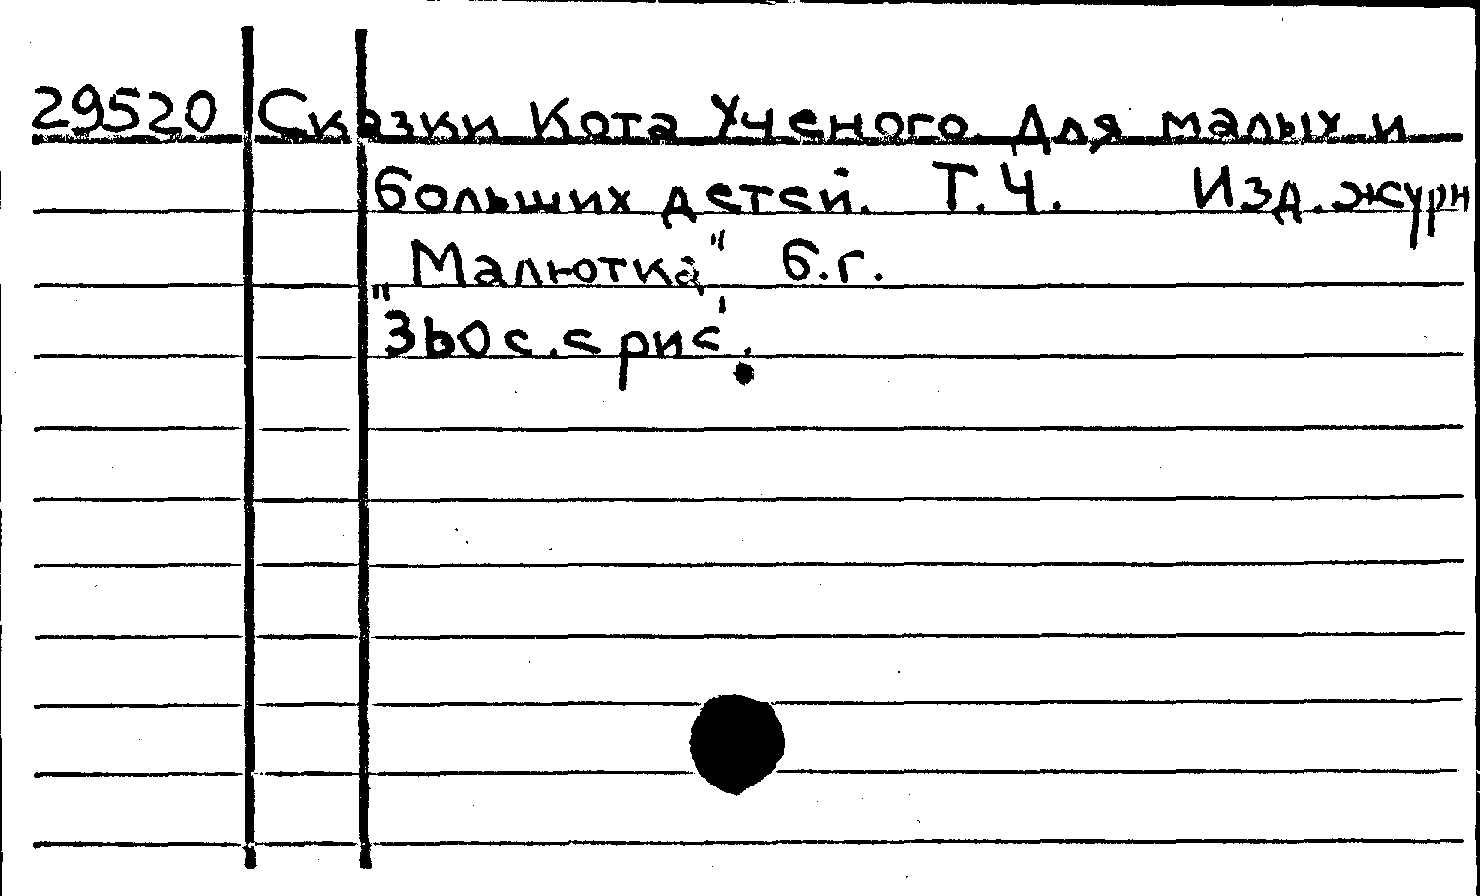 29520 Сказки Кота Ученого для малых и
больших детей. Т.Ч. Изд.журн
"Малютка" б.г.
360 с.с рис.